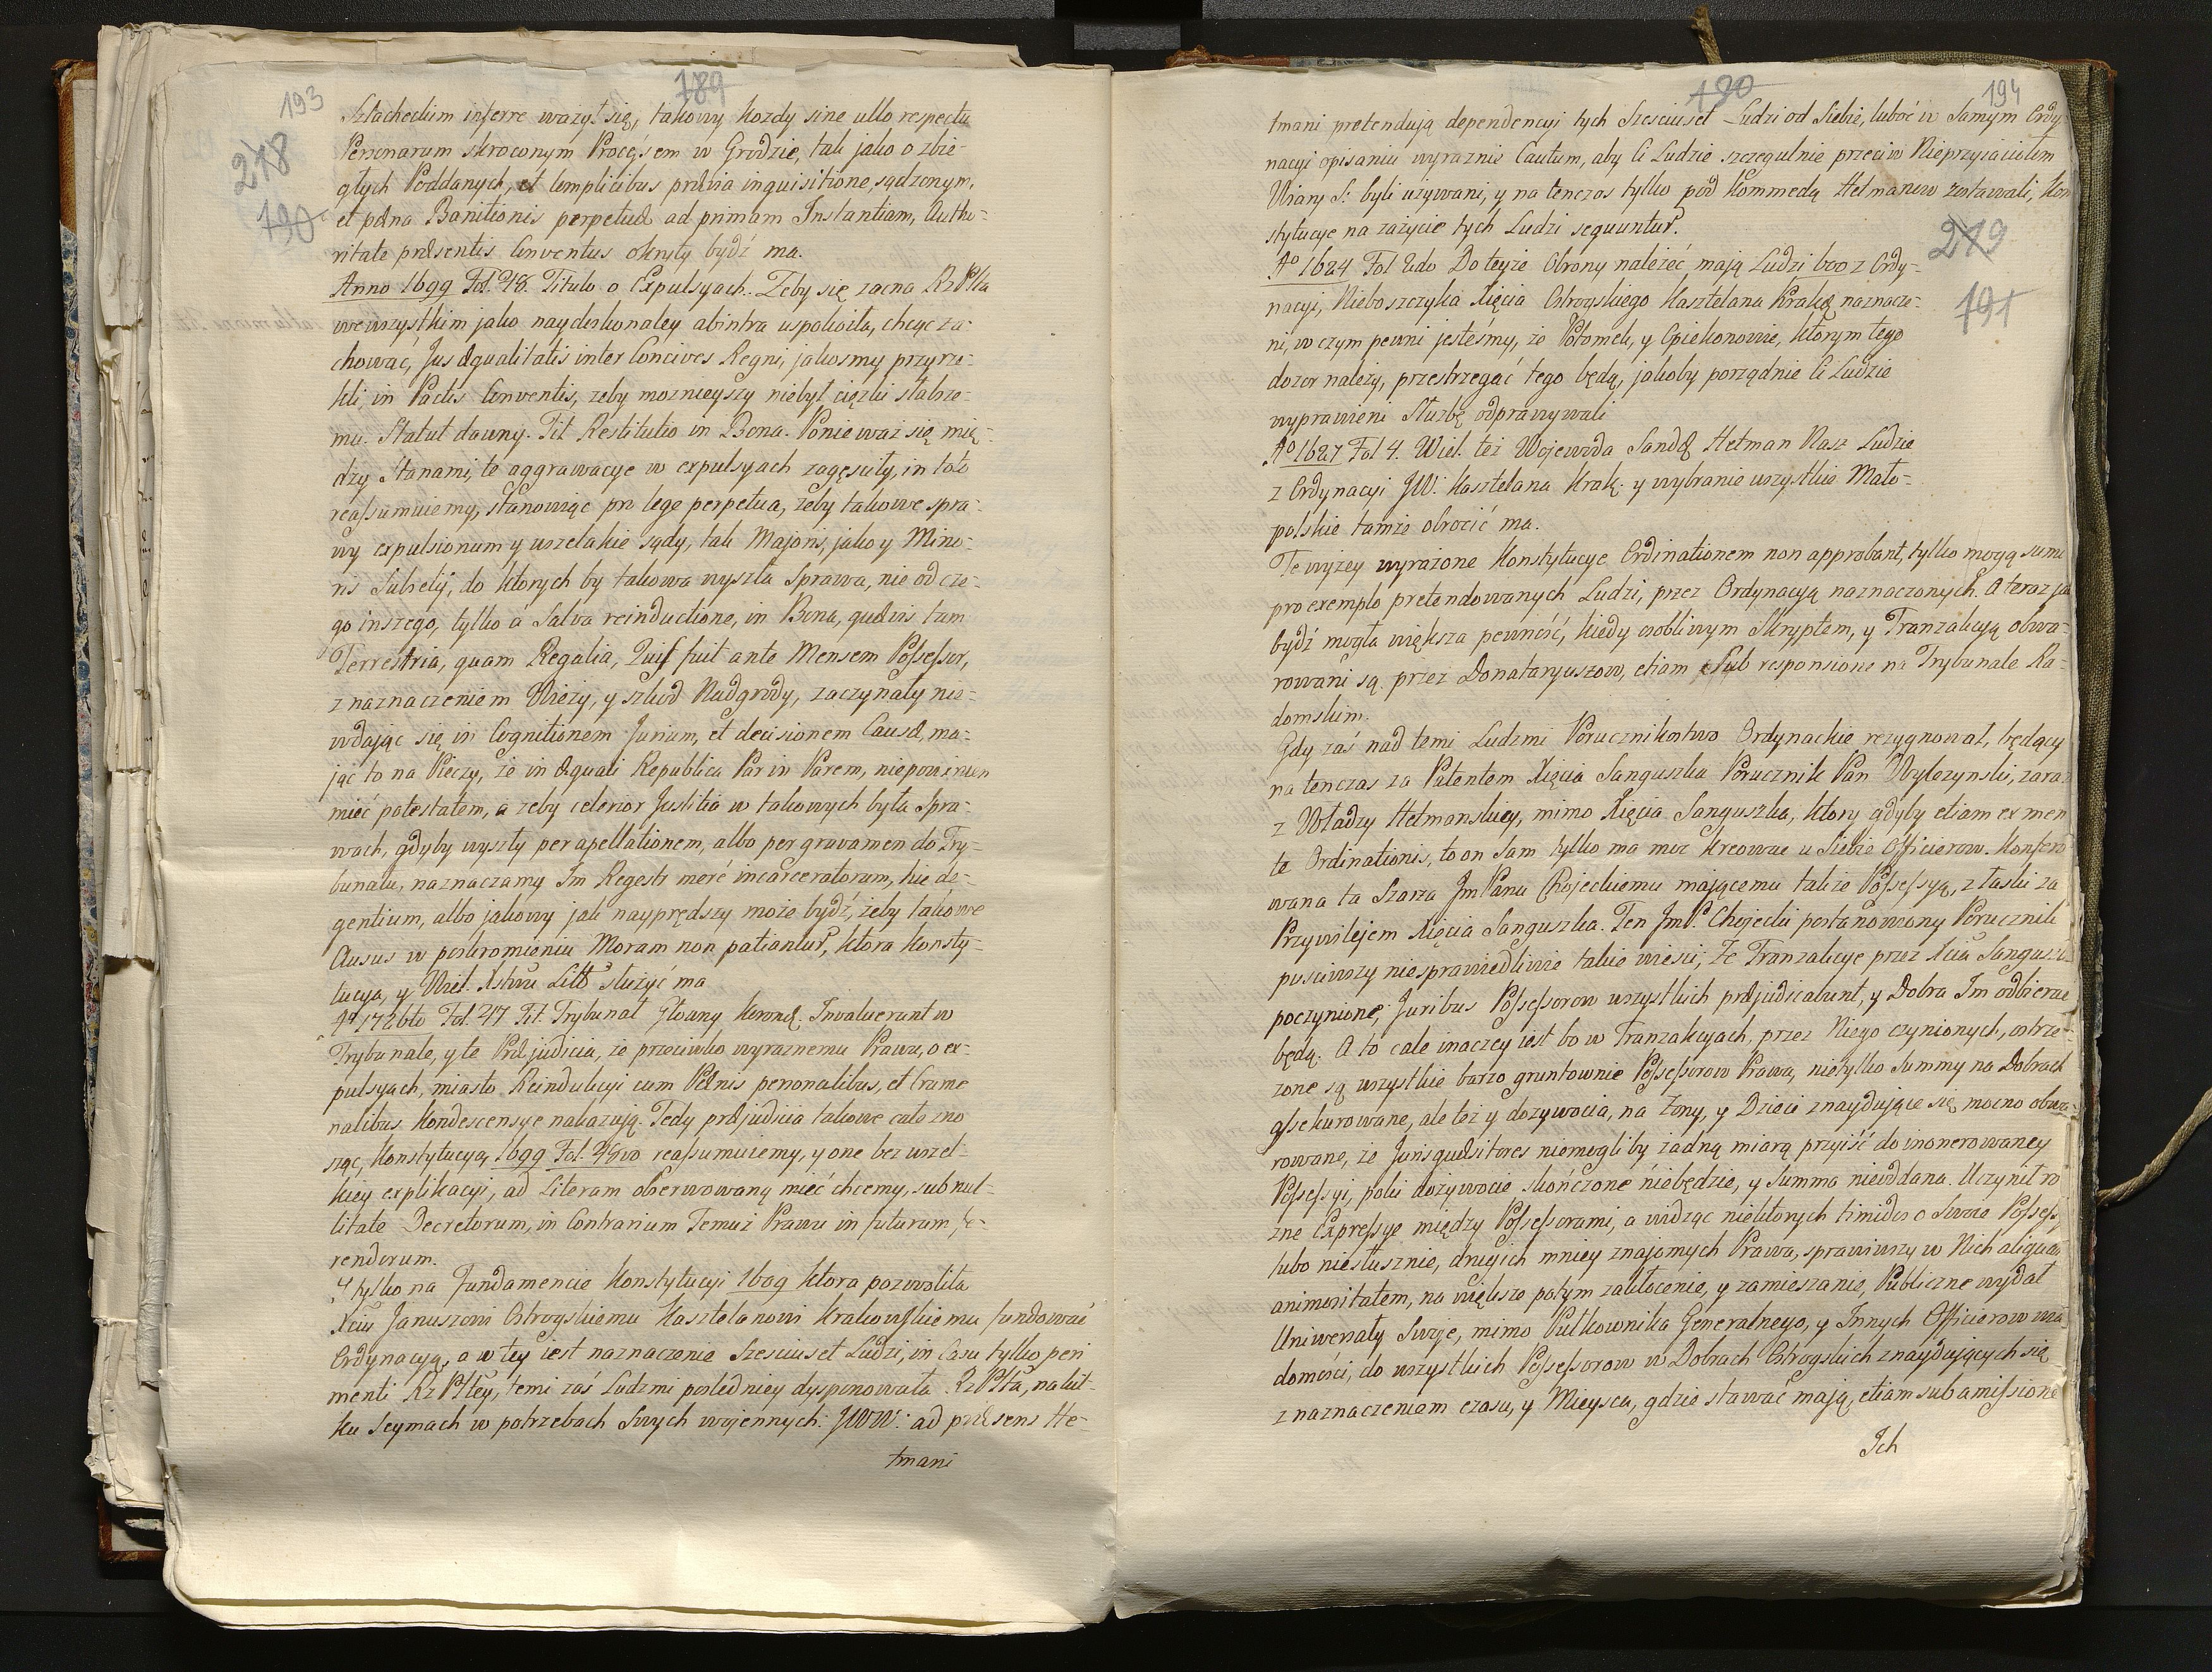 193
789
218
190
Szlacheckim inferre ważył się, takowy kozdy sine ullo respectu
Personarum skroconym Procęsem w Grodzie, tak jako o zbie-
głych Poddanych, et Complicibus prævia inquisitione, sądzonym,
et pæna Banitionis perpetuæ ad primam Instantiam, Autho-
ritate præsentis Conventus okryty bydź ma.
Anno 1699 Fol. 48. Titulo o Expulsyach. Zeby się zacna RzPlta
wewszystkim jako naydoskonaley abintra uspokoiła, chcąc za-
chować, Jus æqualitatis inter Concives Regni, jakosmy przyrze-
kli, in Pactis Conventis, zeby moznieyszy niebył ciązki słabsze-
mu. Statut dawny. Tit Restitutio in Bona. Ponieważ się mię-
dzy Stanami, te aggrawacye w expulsyach zagęsciły, in toto
reassumuiemy, stanowiąc pro lege perpetua, żeby takowe spra-
wy expulsionum y wszelakie sądy, tak Majoris, jako y Mino-
ris Subselij, do ktorych by takowa wyszła Sprawa, nie od cze-
go inszego, tylko á Salva reinductione, in Bona, quævis tam
Terrestria, quam Regalia, Quis fuit ante Mensem Possessor,
z naznaczeniem Wieży, y szkod Nadgrody, zaczynały nie-
wdając się in Cognitionem Jurium, et decisionem Causæ, ma-
jąc to na Pieczy, że in æquali Republica Par in Parem, niepowinien
mieć potestatem, a zeby celerior Justitia w takowych była Spra-
wach, gdyby wyszły per apellationem, albo per gravamen do Try-
bunału, naznaczamy Im Regestr meré incarceratorum, hic de-
gentium, albo jakowy jak nayprędszy może bydź, żeby takowe
Ausus w poskromieniu Moram non patiantur, ktora Konsty-
tucya, y Wiel. Xstwu Litt służyć ma
Ao 1726to Fol. 47 Tit. Trybunał Głowny Koronñ. Invaluerunt w
Trybunale, y te Præjudicia, że przeciwko wyraznemu Prawu, o ex-
pulsyach, miasto Reindukcyi cum Pænis personalibus, et Crimi
nalibus. Kondescensye nakazują. Tedy præjudicia takowe cale zno
sząc, Konstytucyą, 1699 Fol. 48vo reassumuiemy, y one bez wszel-
kiey explikacyi, ad Literam obserwowaną mieć chcemy, sub nul-
litate Decretorum, in Contrarium Temuż Prawu in futurum fe-
rendorum.
Y tylko na Fundamencie Konstytucyi 1609 ktora pozwoliła
Xciu Januszowi Ostrogskiemu Kasztelanowi Krakowskiemu fundować
Ordynacyą, a w tey iest naznaczenie Szesciuset Ludzi, in Casu tylko peri
menti RzPltey, temi zaś Ludzmi posledniey dysponowała RzPlta, na kil-
ku Seymach w potrzebach Swych wojennych: JWW: ad præsens He-
tmani
190
194
219
191
tmani pretendują dependencyi tych Szesciuset Ludzi od Siebie, luboć w Samym Ordy
nacyi opisaniu wyraznie Cautum, aby Ci Ludzie szczegulnie przeciw Nieprzyiaciołom
Wiary S: byli używani, y na tenczas tylko pod Kommędą Hetmanow zostawali, Kon
stytucye na zażycie tych Ludzi sequuntur.
Ao 1624 Fol 2do Do teyże Obrony należeć mają Ludzi 600 z Ordy-
nacyi, Nieboszczyka Xięcia Ostrogskiego Kasztelana Krakõ naznacze-
ni, w czym pewni jesteśmy, że Potomek, y Opiekonowie, ktorym tego
dozor należy, przestrzegać tego będą, jakoby porządnie Ci Ludzie
wyprawieni Służbę odprawywali
Ao 1627 Fol 4. Wiel. też Wojewoda Sandõ Hetman Nasz Ludzie
z Ordynacyi JW: Kasztelana Krak: y wybranie wszystkie Mało-
polskie tamże obrocić ma.
Te wyżey wyrażone Konstytucye Ordinationem non approbant, tylko mogą sumi
pro exemplo pretendowanych Ludzi, przez Ordynacyą naznaczonych. A teraz ja
bydź mogła większa pewność, kiedy osobliwym Skryptem, y Tranzakcyą obwa-
rowani są przez Donataryuszow, etiam Sub responsione na Trybunale Ra-
domskim.
Gdy zaś nad temi Ludzmi Porucznikostwo Ordynackie rezygnował, będący
na tenczas za Patentem Xięcia Sanguszka Porucznik Pan Wyleżynski, zara
z Władzy Hetmanskiey, mimo Xięcia Sanguszka, ktory gdyby etiam ex men
te Ordinationis, to on Sam tylko ma moc kreowac u Siebie Officierow. Konfero
wana ta Szarża Jm Panu Chojeckiemu mającemu także Possessyą, z łaski za
Przywilejem Xięcia Sanguszka. Ten JmP. Chojecki postanowiony Porucznik
pusciwszy niesprawiedliwie takie wiesci, Ze Tranzakcye przez Xcia Sangusz
poczynione, Juribus Possessorow wszystkich præjudicabunt, y Dobra Im odbierać
będą. A to cale inaczey iest bo w Tranzakcyach, przez Niego czynionych, ostrze-
zone są wszystkie barzo gruntownie Possessorow Prawa, nietylko Summy na Dobrach
assekurowane, ale też y dozywocia, na Zony, y Dzieci znaydujące się, mocno obwa-
rowane, że Jurisquæsitores niemogliby żadną miarą przyiść do inonerowaney
Possessyi, poki dożywocie skończone niebędzie, y Summa nieoddana. Uczynił ro
zne Expressye między Possessorami, a widząc niektorych timidos o Swoie Possess
lubo niesłusznie, drugich mniey znajomych Prawa, sprawiwszy w Nich aliquam
animositatem, na większe potym zakłocenie, y zamieszanie, Publiczne wydał
Uniwersały Swoje, mimo Pułkownika Generalnego, y Innych Officierow wia
domości, do wszystkich Possessorow w Dobrach Ostrogskich znaydujących się
z naznaczeniem czasu, y Mieysca, gdzie stawać mają, etiam sub amissione
Ich